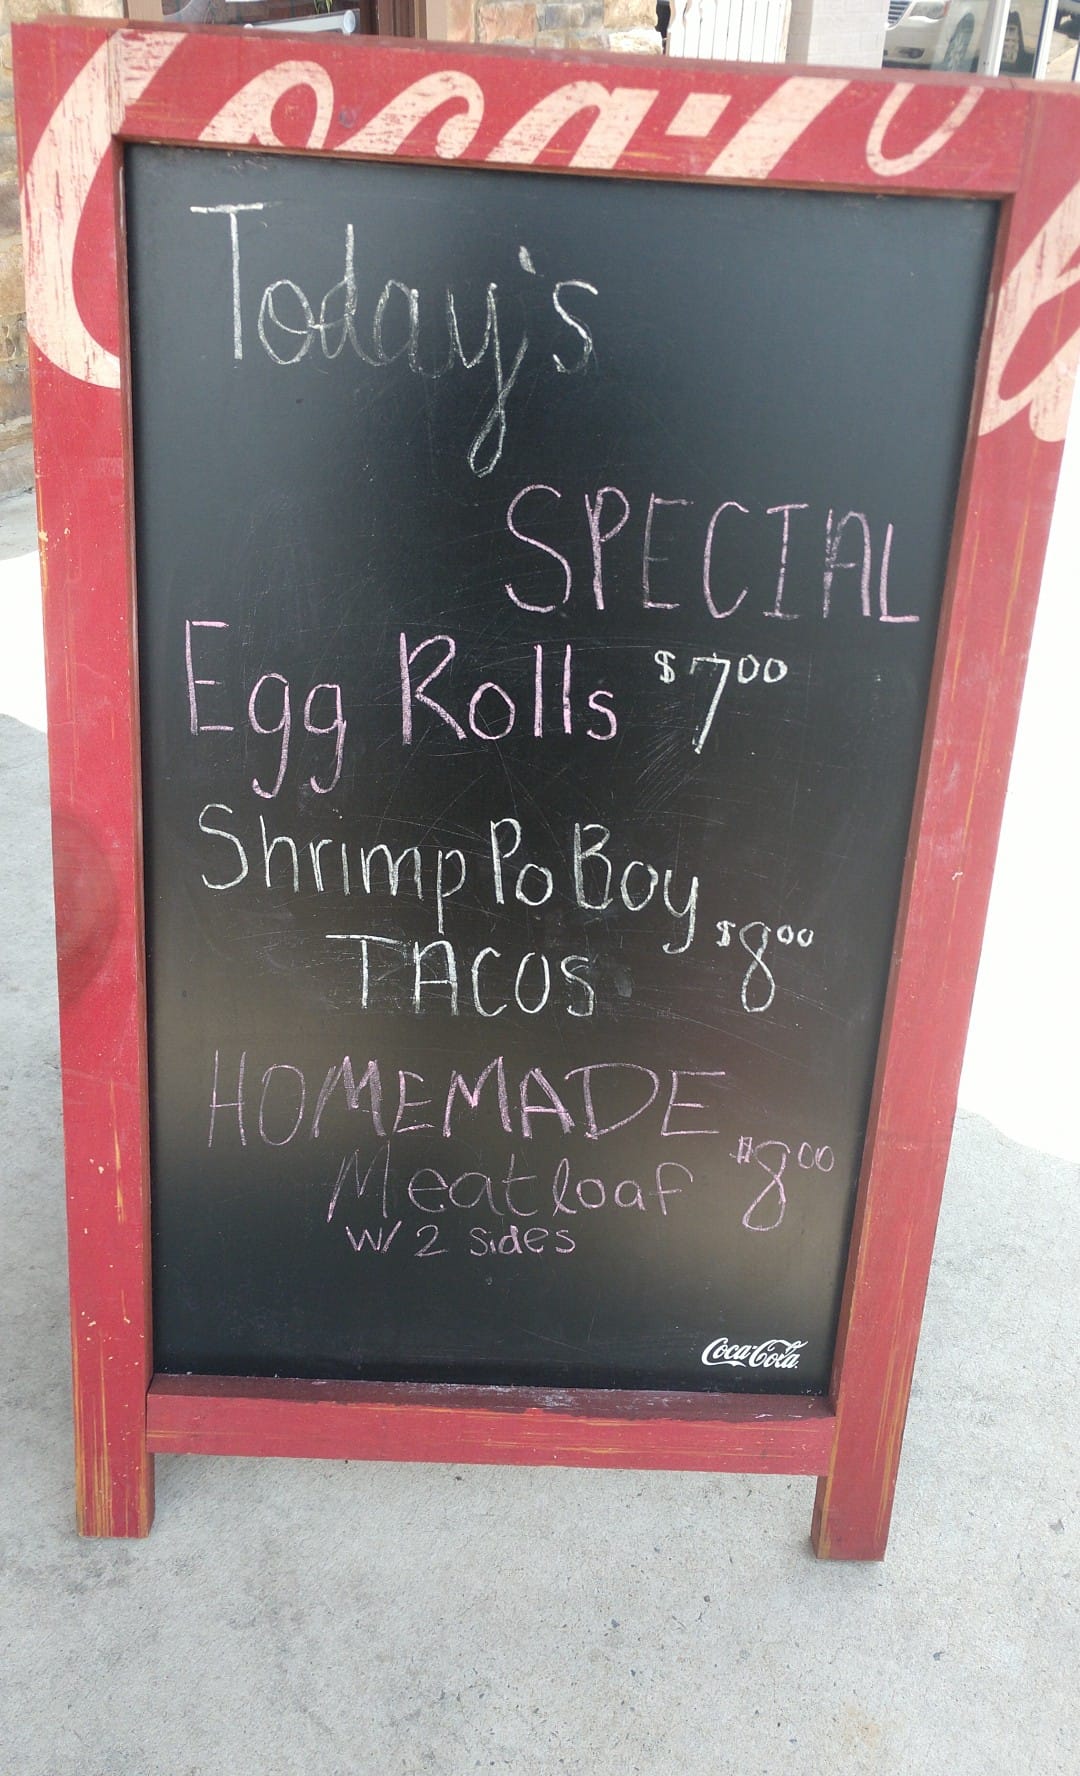 Coca-Cola
Today's
SPECIAL
Egg Rolls $700
Shrimp Po Boy
TACOS $800
HOMEMADE
Meatloaf $800
w/ 2 sides
Coca-Cola